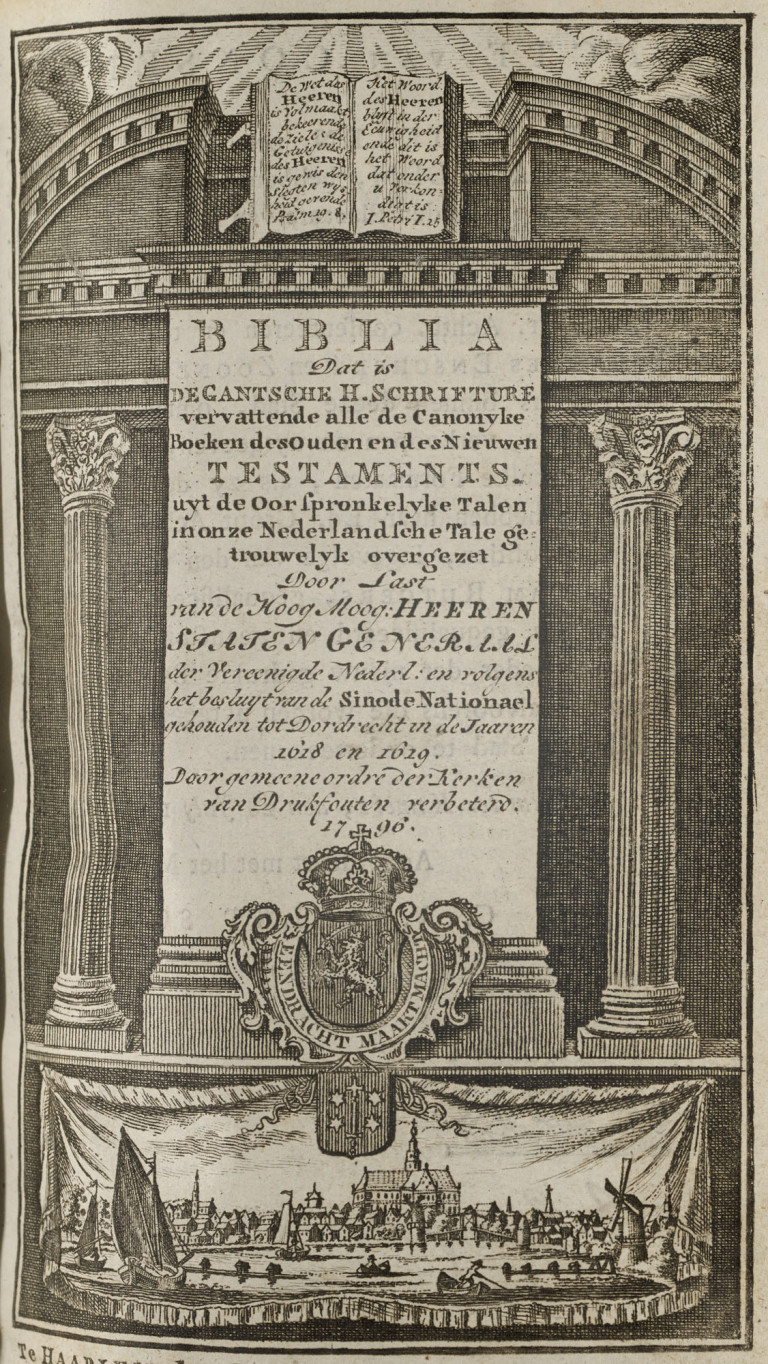 De Wet des
Heeren
is Volmaakt
bekeerende
de ziele: de
Getuigenisse
des Heeren
is gewis den
Slegten wys
heid gevende
Psalm 19. 8.
Het Woord
des Heeren
blyft in der
Eeuwigheid
ende dit is
het Woord
dat onder
u Verkon-
digt is
I. Petri I. 25
BIBLIA
Dat is
DE GANTSCHE H. SCHRIFTURE
vervattende alle de Canonyke
Boeken des Ouden en des Nieuwen
TESTAMENTS.
uyt de Oorſpronkelyke Talen
in onze Nederlandſche Tale ge:
trouwelyk overgezet
Door Last
van de Hoog Moog: HEEREN
STATEN GENERAAL
der Vereenigde Nederl: en volgens
het besluyt van de Sinode Nationael
gehouden tot Dordrecht in de Jaaren
1618 en 1619.
Door gemeene ordre der Kerken
van Drukfouten verbeterd.
1796.
EENDRACHT MAAKT MACHT
Te